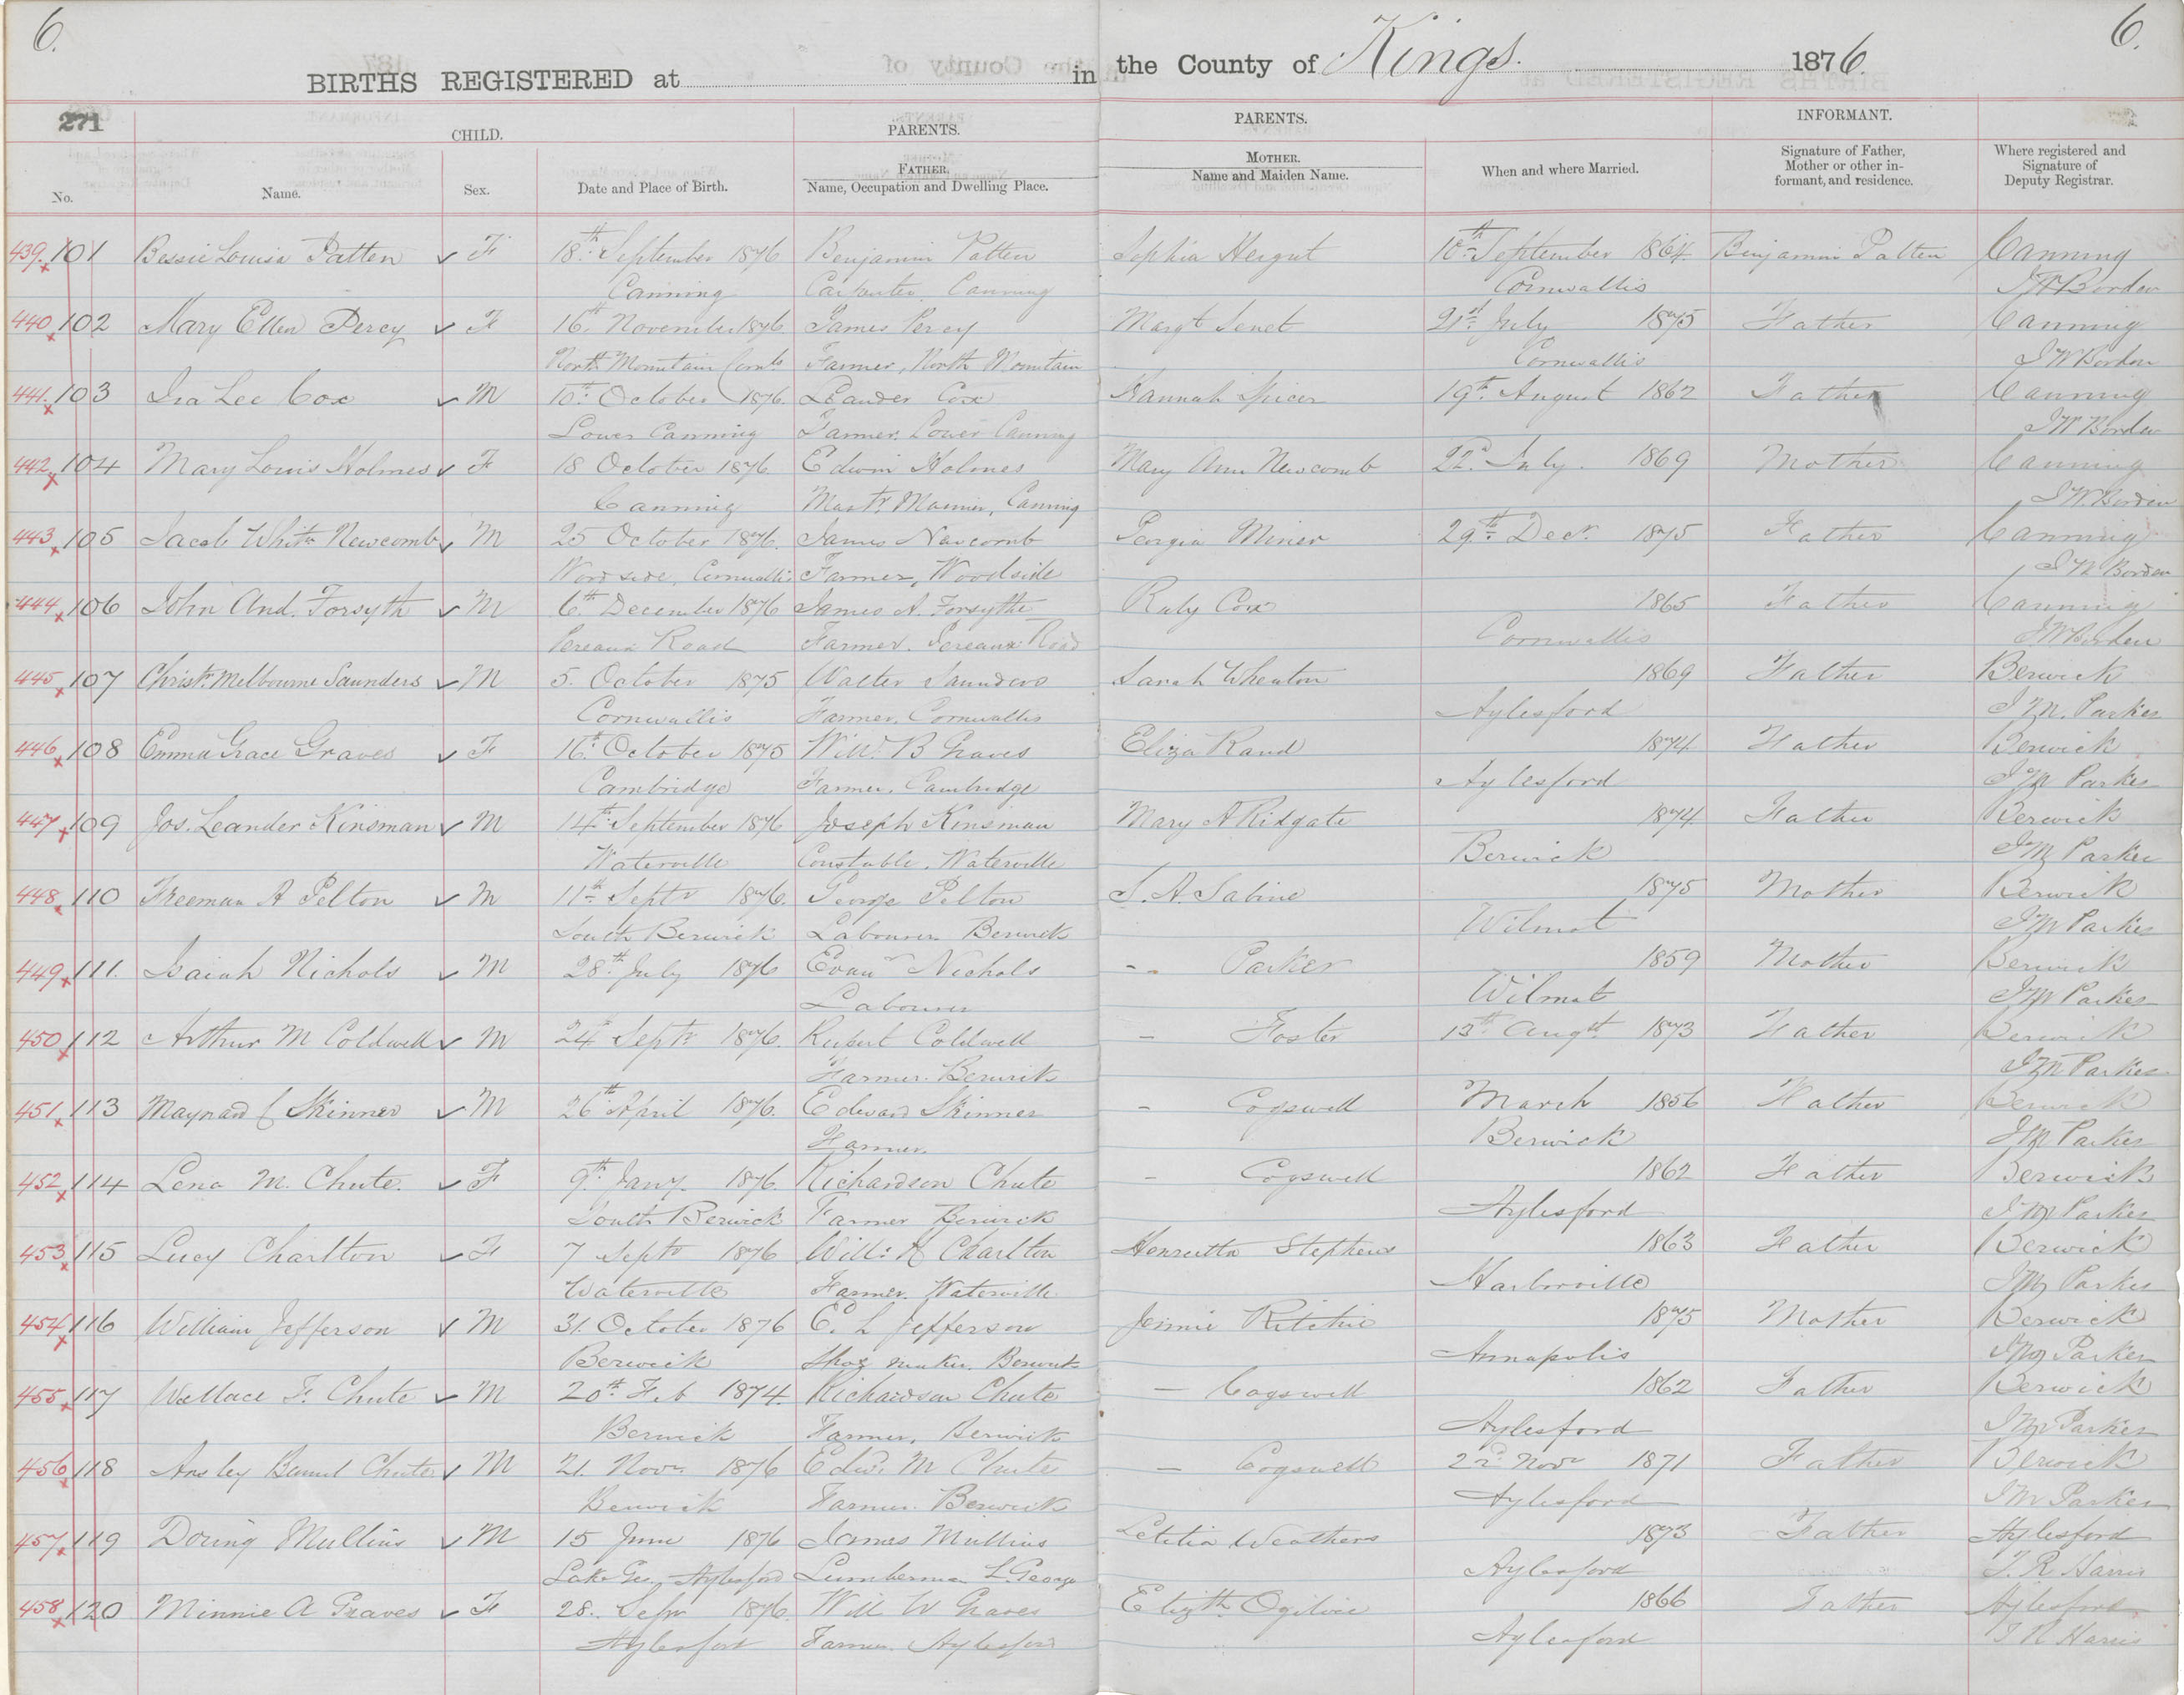 6.
6.
BIRTHS REGISTERED at in the County of Kings. 1876.
271
CHILD. PARENTS. PARENTS. INFORMANT.
No. Name. Sex. Date and Place of Birth. FATHER. Name, Occupation and Dwelling Place. MOTHER. Name and Maiden Name. When and where Married. Signature of Father, Mother or other informant, and residence. Where registered and Signature of Deputy Registrar.
439. 101 Bessie Louisa Patten F 18th September 1876 Benjamin Patten Sophia Hergut 10th September 1864 Benjamin Patten Canning
Canning Carpenter Canning Cornwallis J W Borden
440 102 Mary Ellen Percy F 16th November 1876 James Percy Margt Senet 21st July 1875 Father Canning
North Mountain Corns Farmer, North Mountain Cornwallis J W Borden
441. 103 Ira Lee Cox M 10th October 1876. Leander Cox Hannah Spicer 19th August 1862 Father Canning
Lower Canning Farmer. Lower Canning J W Borden
442 104 Mary Louis Holmes F 18 October 1876 Edwin Holmes Mary Ann Newcomb 22d July. 1869 Mother Canning
Canning Mastr Mariner, Canning J W. Borden
443 105 Jacob White Newcomb M 25 October 1876. James Newcomb Georgia Miner 29th Decr. 1875 Father Canning
Woodside, Cornwallis Farmer, Woodside J W Borden
444 106 John And. Forsyth M 6th December 1876 James A. Forsythe Ruby Cox 1865 Father Canning
Pereaux Road Farmer. Pereaux Road Cornwallis J W Borden
445 107 Christr Melbourne Saunders M 5. October 1875 Walter Saunders Sarah Wheaton 1869 Father Berwick
Cornwallis Farmer, Cornwallis Aylesford J M. Parker
446 108 Emma Grace Graves F 16th October 1875 Willm B Graves Eliza Rand 1874 Father Berwick
Cambridge Farmer, Cambridge Aylesford J M Parker
447 109 Jos. Leander Kinsman M 14th September 1876 Joseph Kinsman Mary A Ridgate 1874 Father Berwick
Waterville Constable. Waterville Berwick J M Parker
448. 110 Freeman A Pelton M 11th Septr 1876. George Pelton S. A. Sabine 1875 Mother Berwick
South Berwick Labourer Berwick Wilmot J M Parker
449 111. Isaiah Nichols M 28th July 1876 Evan Nichols - Parker 1859 Mother Berwick
Labourer Wilmot J M Parker
450 112 Arthur M Coldwell M 24th Septr 1876. Rupert Coldwell - Foster 13th Augt 1873 Father Berwick
Farmer. Berwick J M Parker
451. 113 Maynard C Skinner M 26th April 1876. Edward Skinner - Cogswell March 1856 Father Berwick
Farmer. Berwick J M Parker
452 114 Lena M. Chute. F 9th Jany. 1876. Richardson Chute - Cogswell 1862 Father Berwick
South Berwick Farmer Berwick Aylesford J M Parker
453 115 Lucy Charlton F 7 Septr 1876 Will: H Charlton Henrietta Stephens 1863 Father Berwick
Waterville Farmer. Waterville Harborville J M Parker
454 116 William Jefferson M 31. October 1876 E. L Jefferson Jennie Ritchie 1875 Mother Berwick
Berwick Shoe maker. Berwick Annapolis J M Parker
455 117 Wallace F. Chute M 20th Feb 1874. Richardson Chute - Cogswell 1862 Father Berwick
Berwick Farmer, Berwick Aylesford J M Parker
456 118 Ansley Chute M 21. Novr 1876 Edw. M Chute - Cogswell 22d Novr 1871 Father Berwick
Berwick Farmer. Berwick Aylesford J M Parker
457 119 Doring Mullins M 15 June 1876 James Mullins Letitia Weathers 1873 Father Aylesford
Lake Geo, Aylesford Lumberman L. George Aylesford T. R Harris
458 120 Minnie A Graves F 28. Sepr 1876. Will W Graves Elizth Ogilvie 1866 Father Aylesford
Aylesford Farmer. Aylesford Aylesford T R Harris